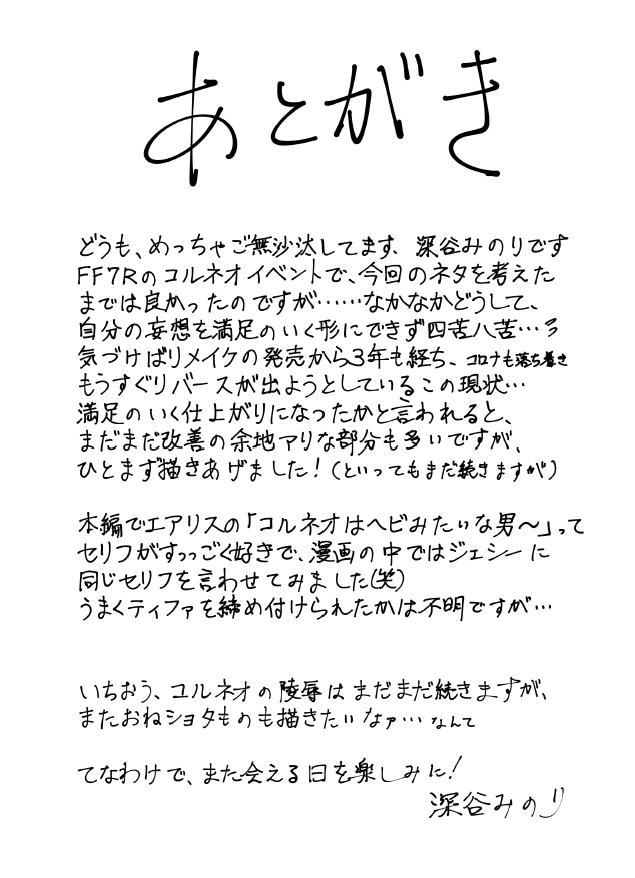 あとがき
どうも、めっちゃご無沙汰してます、深谷みのりです
FF7Rのコルネオイベントで、今回のネタを考えた
までは良かったのですが……なかなかどうして、
自分の妄想を満足のいく形にできず四苦八苦…ろ
気づけばリメイクの発売から3年も経ち、コロナも落ち着き
もうすぐリバースが出ようとしているこの現状…
満足のいく仕上がりになったかと言われると、
まだまだ改善の余地アリな部分も多いですが、
ひとまず描きあげました!(といってもまだ続きますが)
本編でエアリスの「コルネオはヘビみたいな男〜」って
セリフがすっっごく好きで、漫画の中ではジェシーに
同じセリフを言わせてみました(笑)
うまくティファを締め付けられたかは不明ですが…
いちおう、コルネオの陵辱はまだまだ続きますが、
またおねショタものも描きたいなァ…なんて
てなわけで、また会える日を楽しみに!
深谷みのり